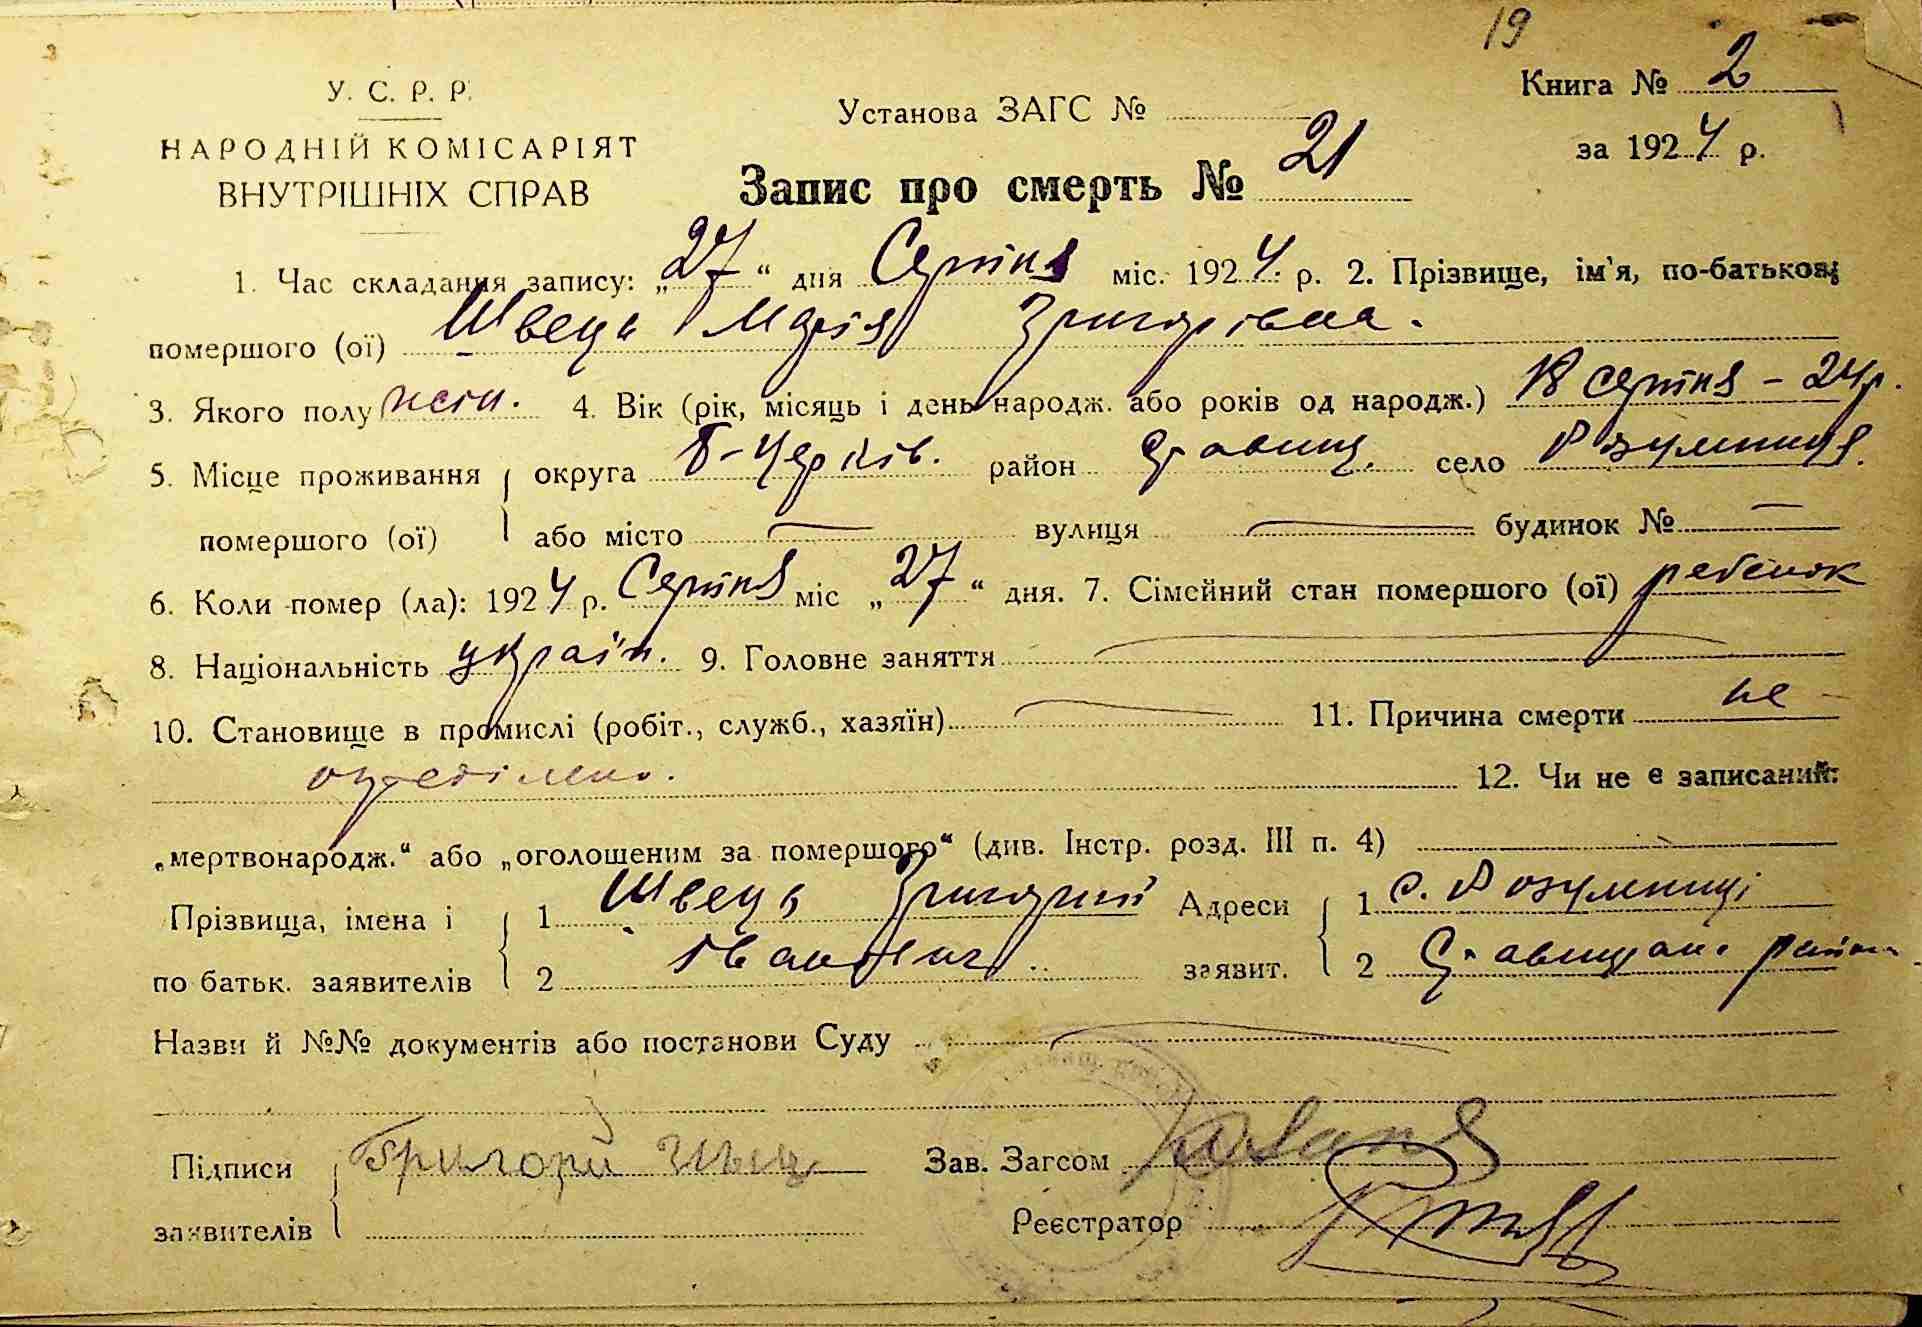 19
У. С. Р. Р.
НАРОДНІЙ КОМІСАРІЯТ
ВНУТРІШНІХ СПРАВ
Установа ЗАГС №
Книга № 2
за 1924 р.
Запис про смерть № 21
1. Час складання запису: „27“ дня Серпня міс. 1924 р. 2. Прізвище, ім'я, по-батькові
помершого (ої) Швець Марія Григорівна.
3. Якого полу жін. 4. Вік (рік, місяць і день народж. або років од народж.) 18 серпня - 24 р.
5. Місце проживання округа Б-Церків. район Ставищ. село Розумниця.
помершого (ої) або місто вулиця будинок № —
6. Коли помер (ла): 1924 р. Серпня міс „27“ дня. 7. Сімейний стан помершого (ої) ребенок
8. Національність україн. 9. Головне заняття
10. Становище в промислі (робіт., служб., хазяїн) 11. Причина смерти не
12. Чи не є записаний:
„мертвонародж.“ або „оголошеним за помершого“ (див. Інстр. розд. III п. 4)
Прізвища, імена і 1 Швець Григорий Адреси 1 с. Розумниці
по батьк. заявителів 2 Іванович заявит. 2 Ставищан. район
Назви й №№ документів або постанови Суду
Підписи Григори Зав. Загсом
заявителів Реєстратор